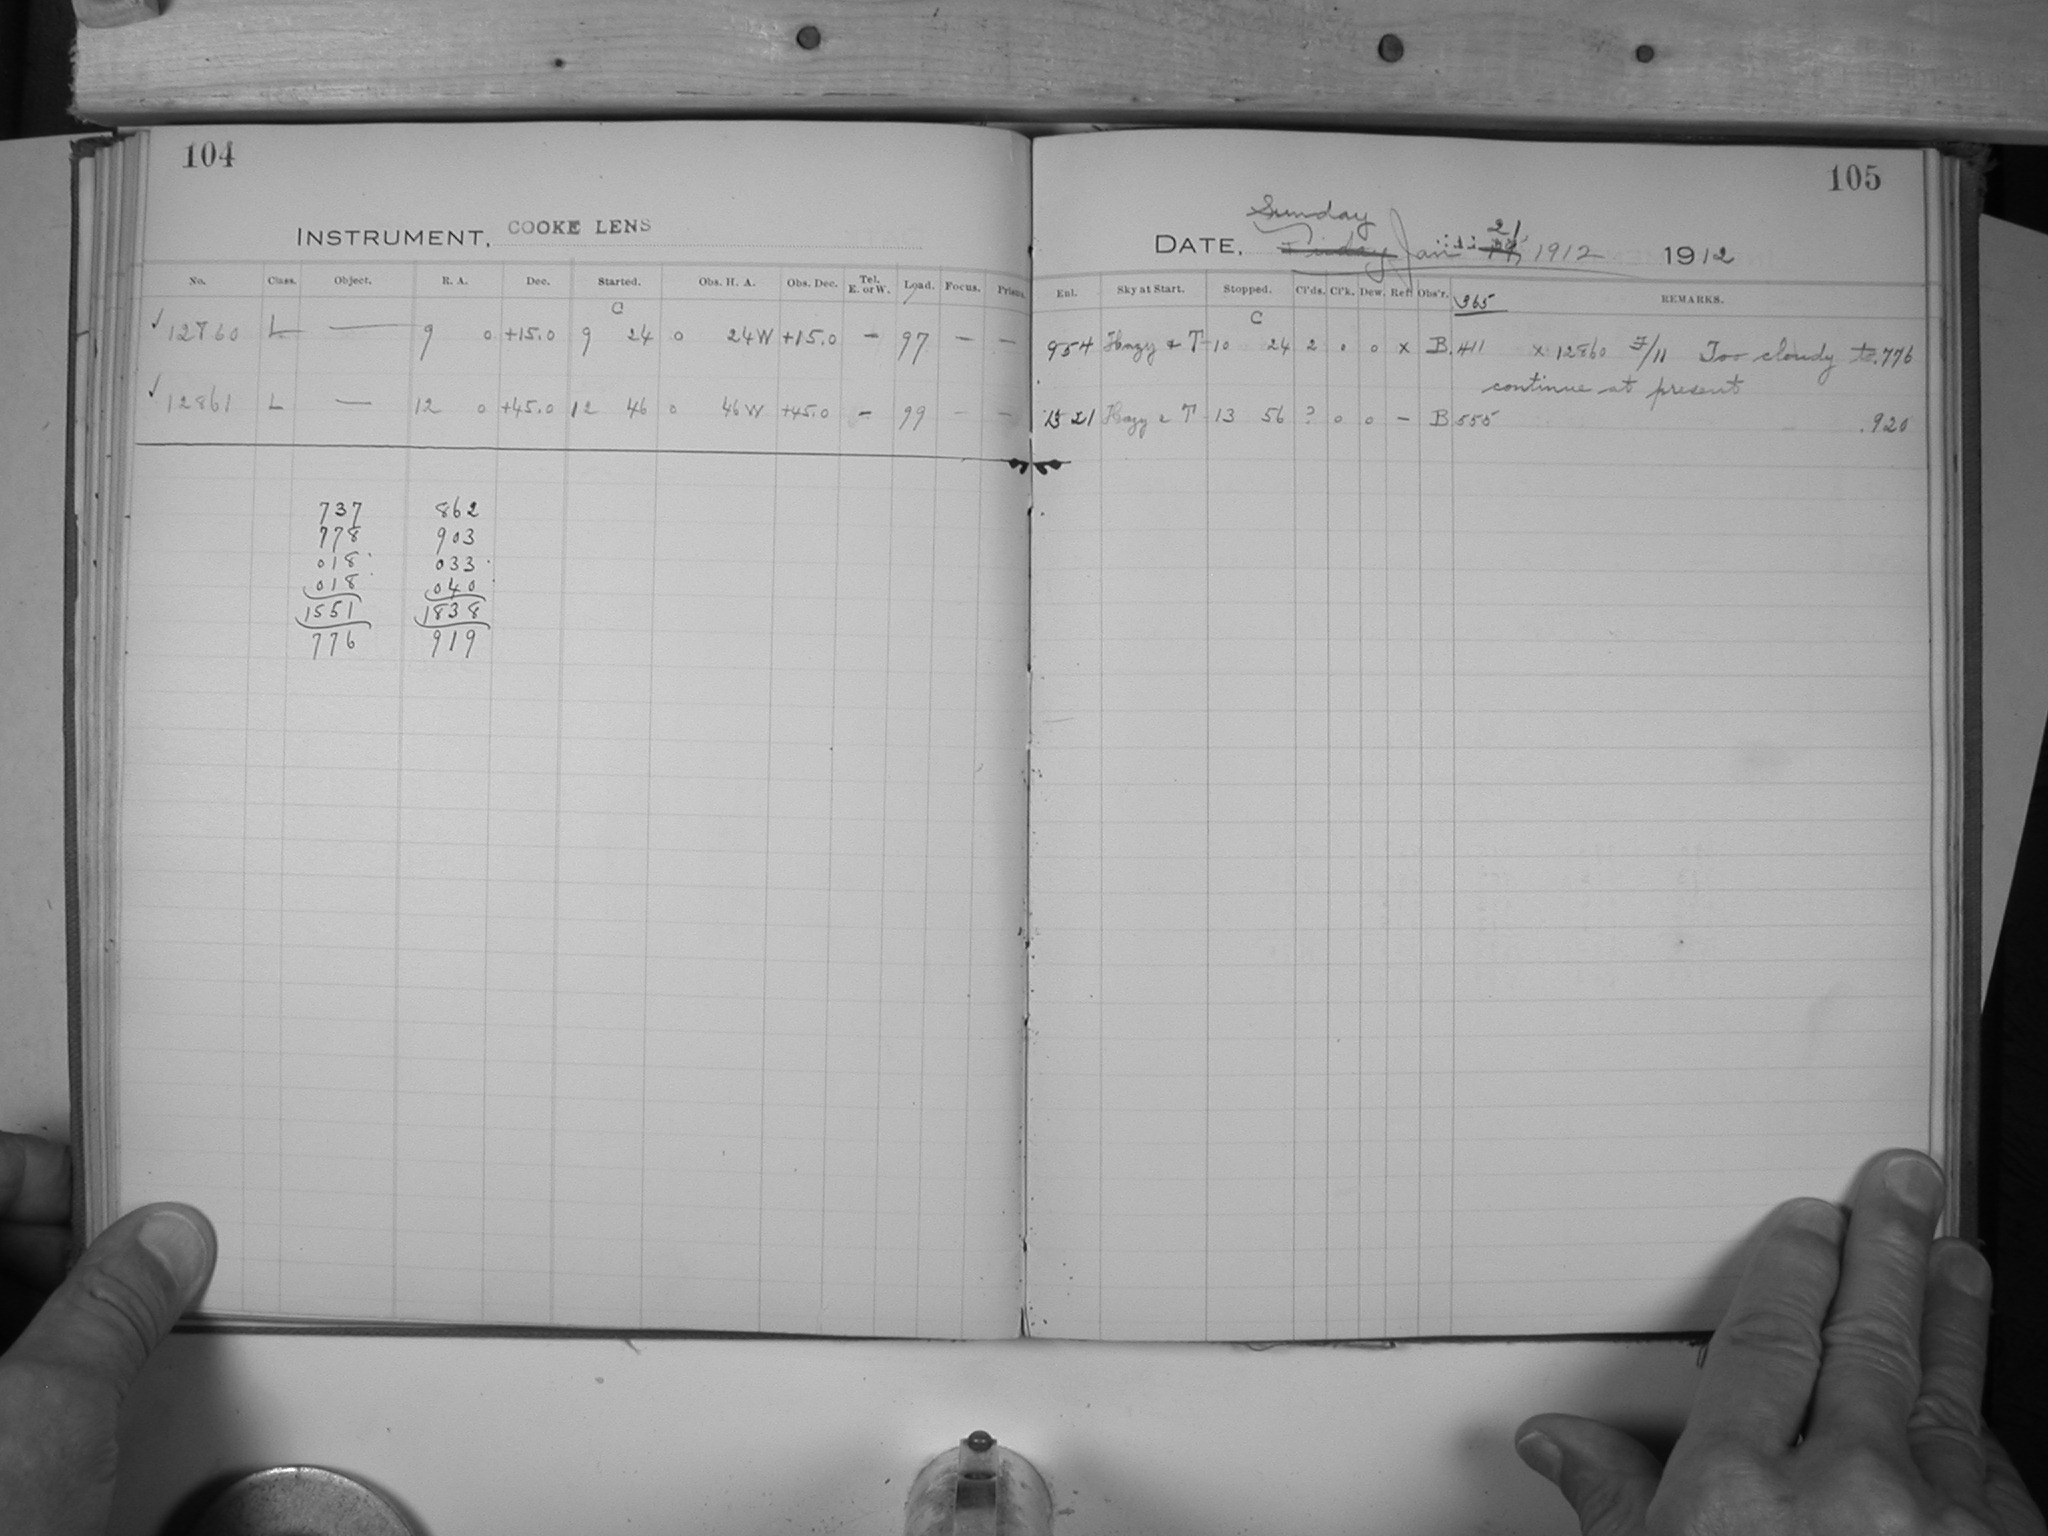 104
INSTRUMENT, COOKE LENS
No. Class. Object. R. A. Dec. Started. Obs. H. A. Obs. Dec. Tel. E. or W. Load. Focus. Prisms.
C
✓ 12860 L — 9 0 +15.0 9 24 0 24 W +15.0 – 97 – –
✓ 12861 L — 12 0 +45.0 12 46 0 46 W +45.0 – 99 – –
737 862
778 903
018 033
018 040
1551 1838
776 919
105
Sunday
21
DATE, Friday Jan 19, 1912 1912
Exl. Sky at Start. Stopped. Cl'ds. Cl'k. Dew. Ref. Obs'r. 365 REMARKS.
C
954 Hazy & T 10 24 2 0 0 x B. 411 x 12860 F/11 Too cloudy to .776
continue at present
13 21 Hazy & T 13 56 ? 0 0 – B 555 .920